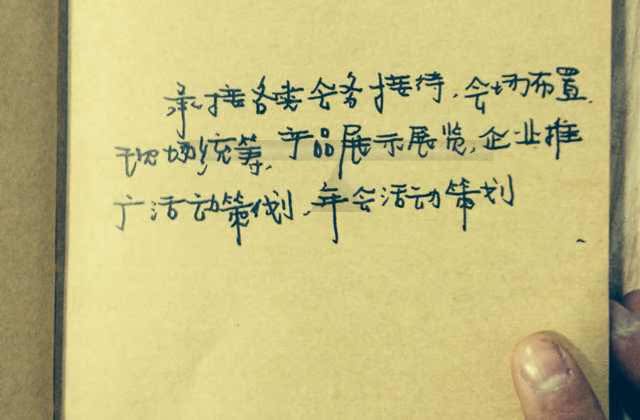 承接各类会务接待,会场布置,
现场统筹,产品展示展览,企业推
广活动策划,年会活动策划